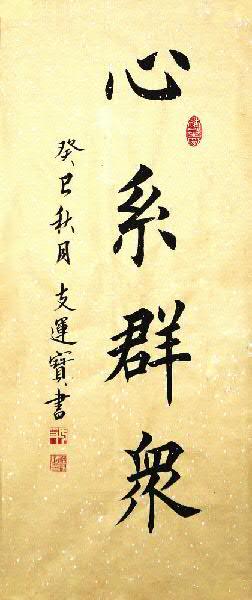 心系群眾
癸巳秋月 支運寶書